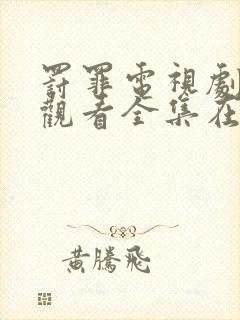 罰罪電視劇
觀看全集在
黃騰飛